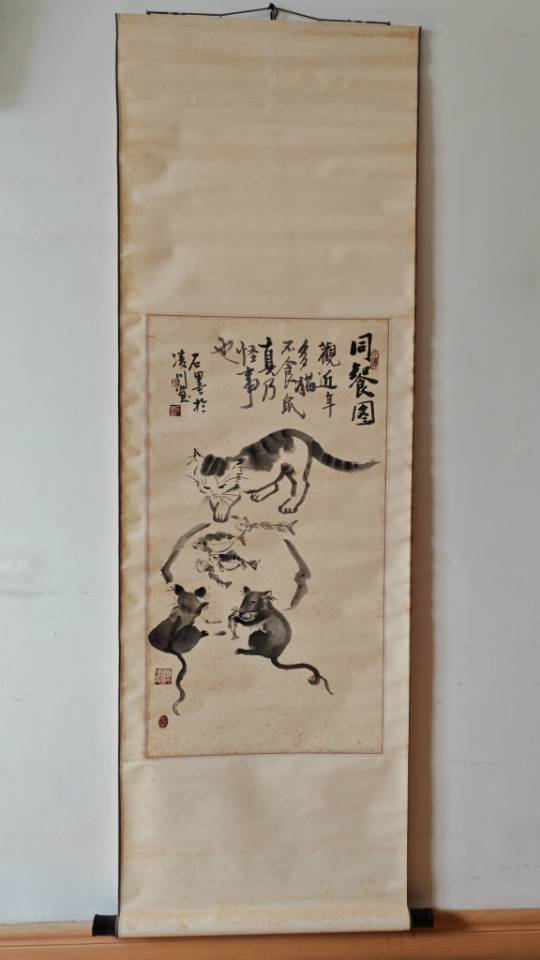 同餐图
觀近年
多猫
不食鼠
真乃
怪事
也
石墨於
凌川畫